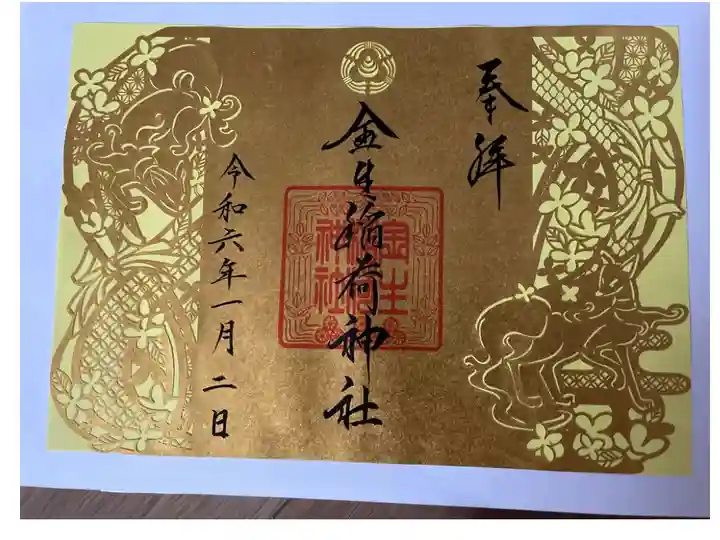 奉拝
金生稲荷神社
金生稲荷神社
令和六年一月二日